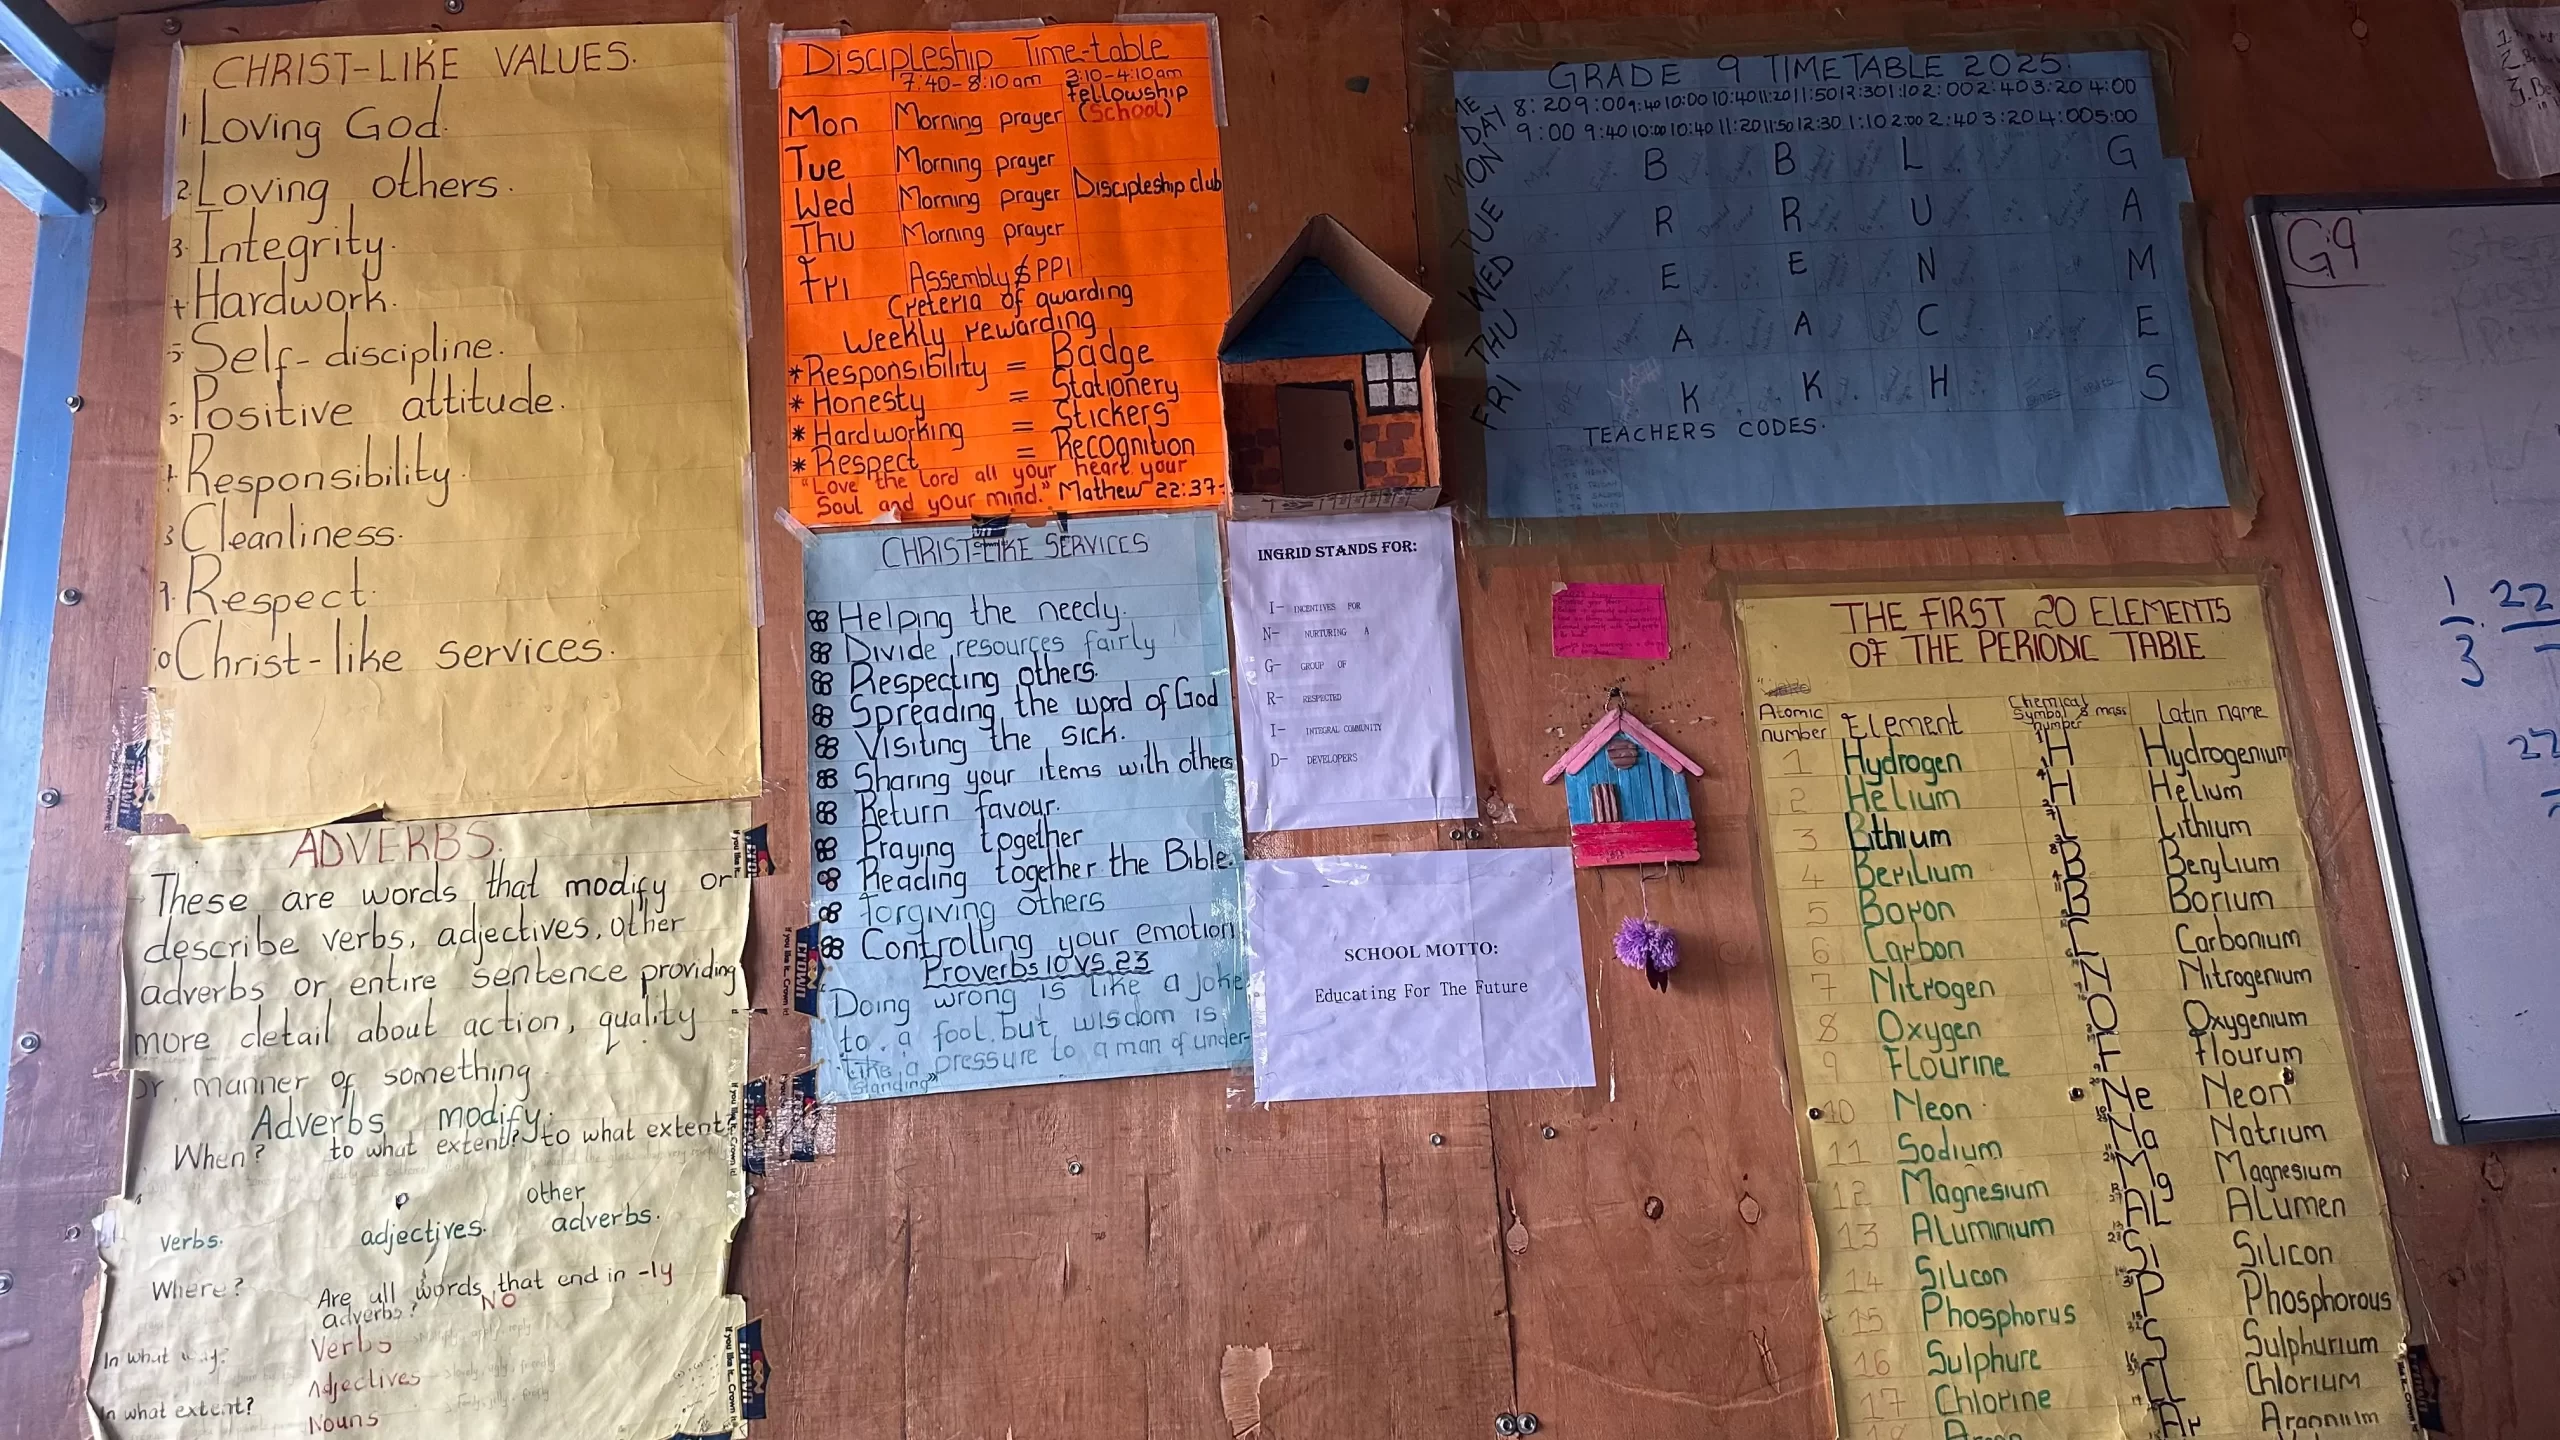 CHRIST-LIKE VALUES.
1. Loving God.
2. Loving others.
3. Integrity.
Hardwork.
5. Self-discipline.
Positive attitude.
Responsibility.
Cleanliness.
Respect.
Christ-like services.
ADVERBS.
These are words that modify or
describe verbs, adjectives, other
adverbs or entire sentence providing
more detail about action, quality
or manner of something
Adverbs modify:
When? to what extent? to what extent?
verbs. adjectives. other adverbs.
Where?
Are all words that end in -ly
adverbs? NO
In what way?
Verbs
Adjectives
In what extent?
Nouns
Discipleship Time-table
7:40-8:10am 3:10-4:10am
Fellowship
Mon Morning prayer (School)
Tue Morning prayer
Wed Morning prayer Discipleship club
Thu Morning prayer
Fri Assembly & PPI
Creteria of awarding
Weekly rewarding
* Responsibility = Badge
* Honesty = Stationery
* Hardworking = Stickers
* Respect = Recognition
"Love the Lord all your heart your
Soul and your mind." Mathew 22:37
CHRIST-LIKE SERVICES
Helping the needy.
Divide resources fairly
Respecting others.
Spreading the word of God
Visiting the sick.
Sharing your items with others
Return favour.
Praying together
Reading together the Bible.
forgiving others
Controlling your emotion
Proverbs 10 VS 23
"Doing wrong is like a joke
to a fool but wisdom is
like a pressure to a man of under-
standing"
INGRID STANDS FOR:
I- INCENTIVES FOR
N- NURTURING A
G- GROUP OF
R- RESPECTED
I- INTEGRAL COMMUNITY
D- DEVELOPERS
SCHOOL MOTTO:
Educating For The Future
GRADE 9 TIMETABLE 2025.
DAY 8:20 9:00 9:40 10:00 10:40 11:20 11:50 12:30 1:10 2:00 2:40 3:20 4:00
9:00 9:40 10:00 10:40 11:20 11:50 12:30 1:10 2:00 2:40 3:20 4:00 5:00
MON B B L G
TUE R R U A
WED E E N M
THU A A C E
FRI K K H S
TEACHERS CODES.
G9
1 22
3
22
THE FIRST 20 ELEMENTS
OF THE PERIODIC TABLE
Atomic number Element Chemical Symbol & mass number Latin name
1 Hydrogen H Hydrogenium
2 Helium H Helium
3 Lithium L Lithium
4 Berilium B Berylium
5 Boron B Borium
6 Carbon C Carbonium
7 Nitrogen N Nitrogenium
8 Oxygen O Oxygenium
9 Flourine F Flourum
10 Neon Ne Neon
11 Sodium Na Natrium
12 Magnesium Mg Magnesium
13 Aluminium AL Alumen
14 Silicon Si Silicon
15 Phosphorus P Phosphorous
16 Sulphure S Sulphurium
17 Chlorine Cl Chlorium
Ar